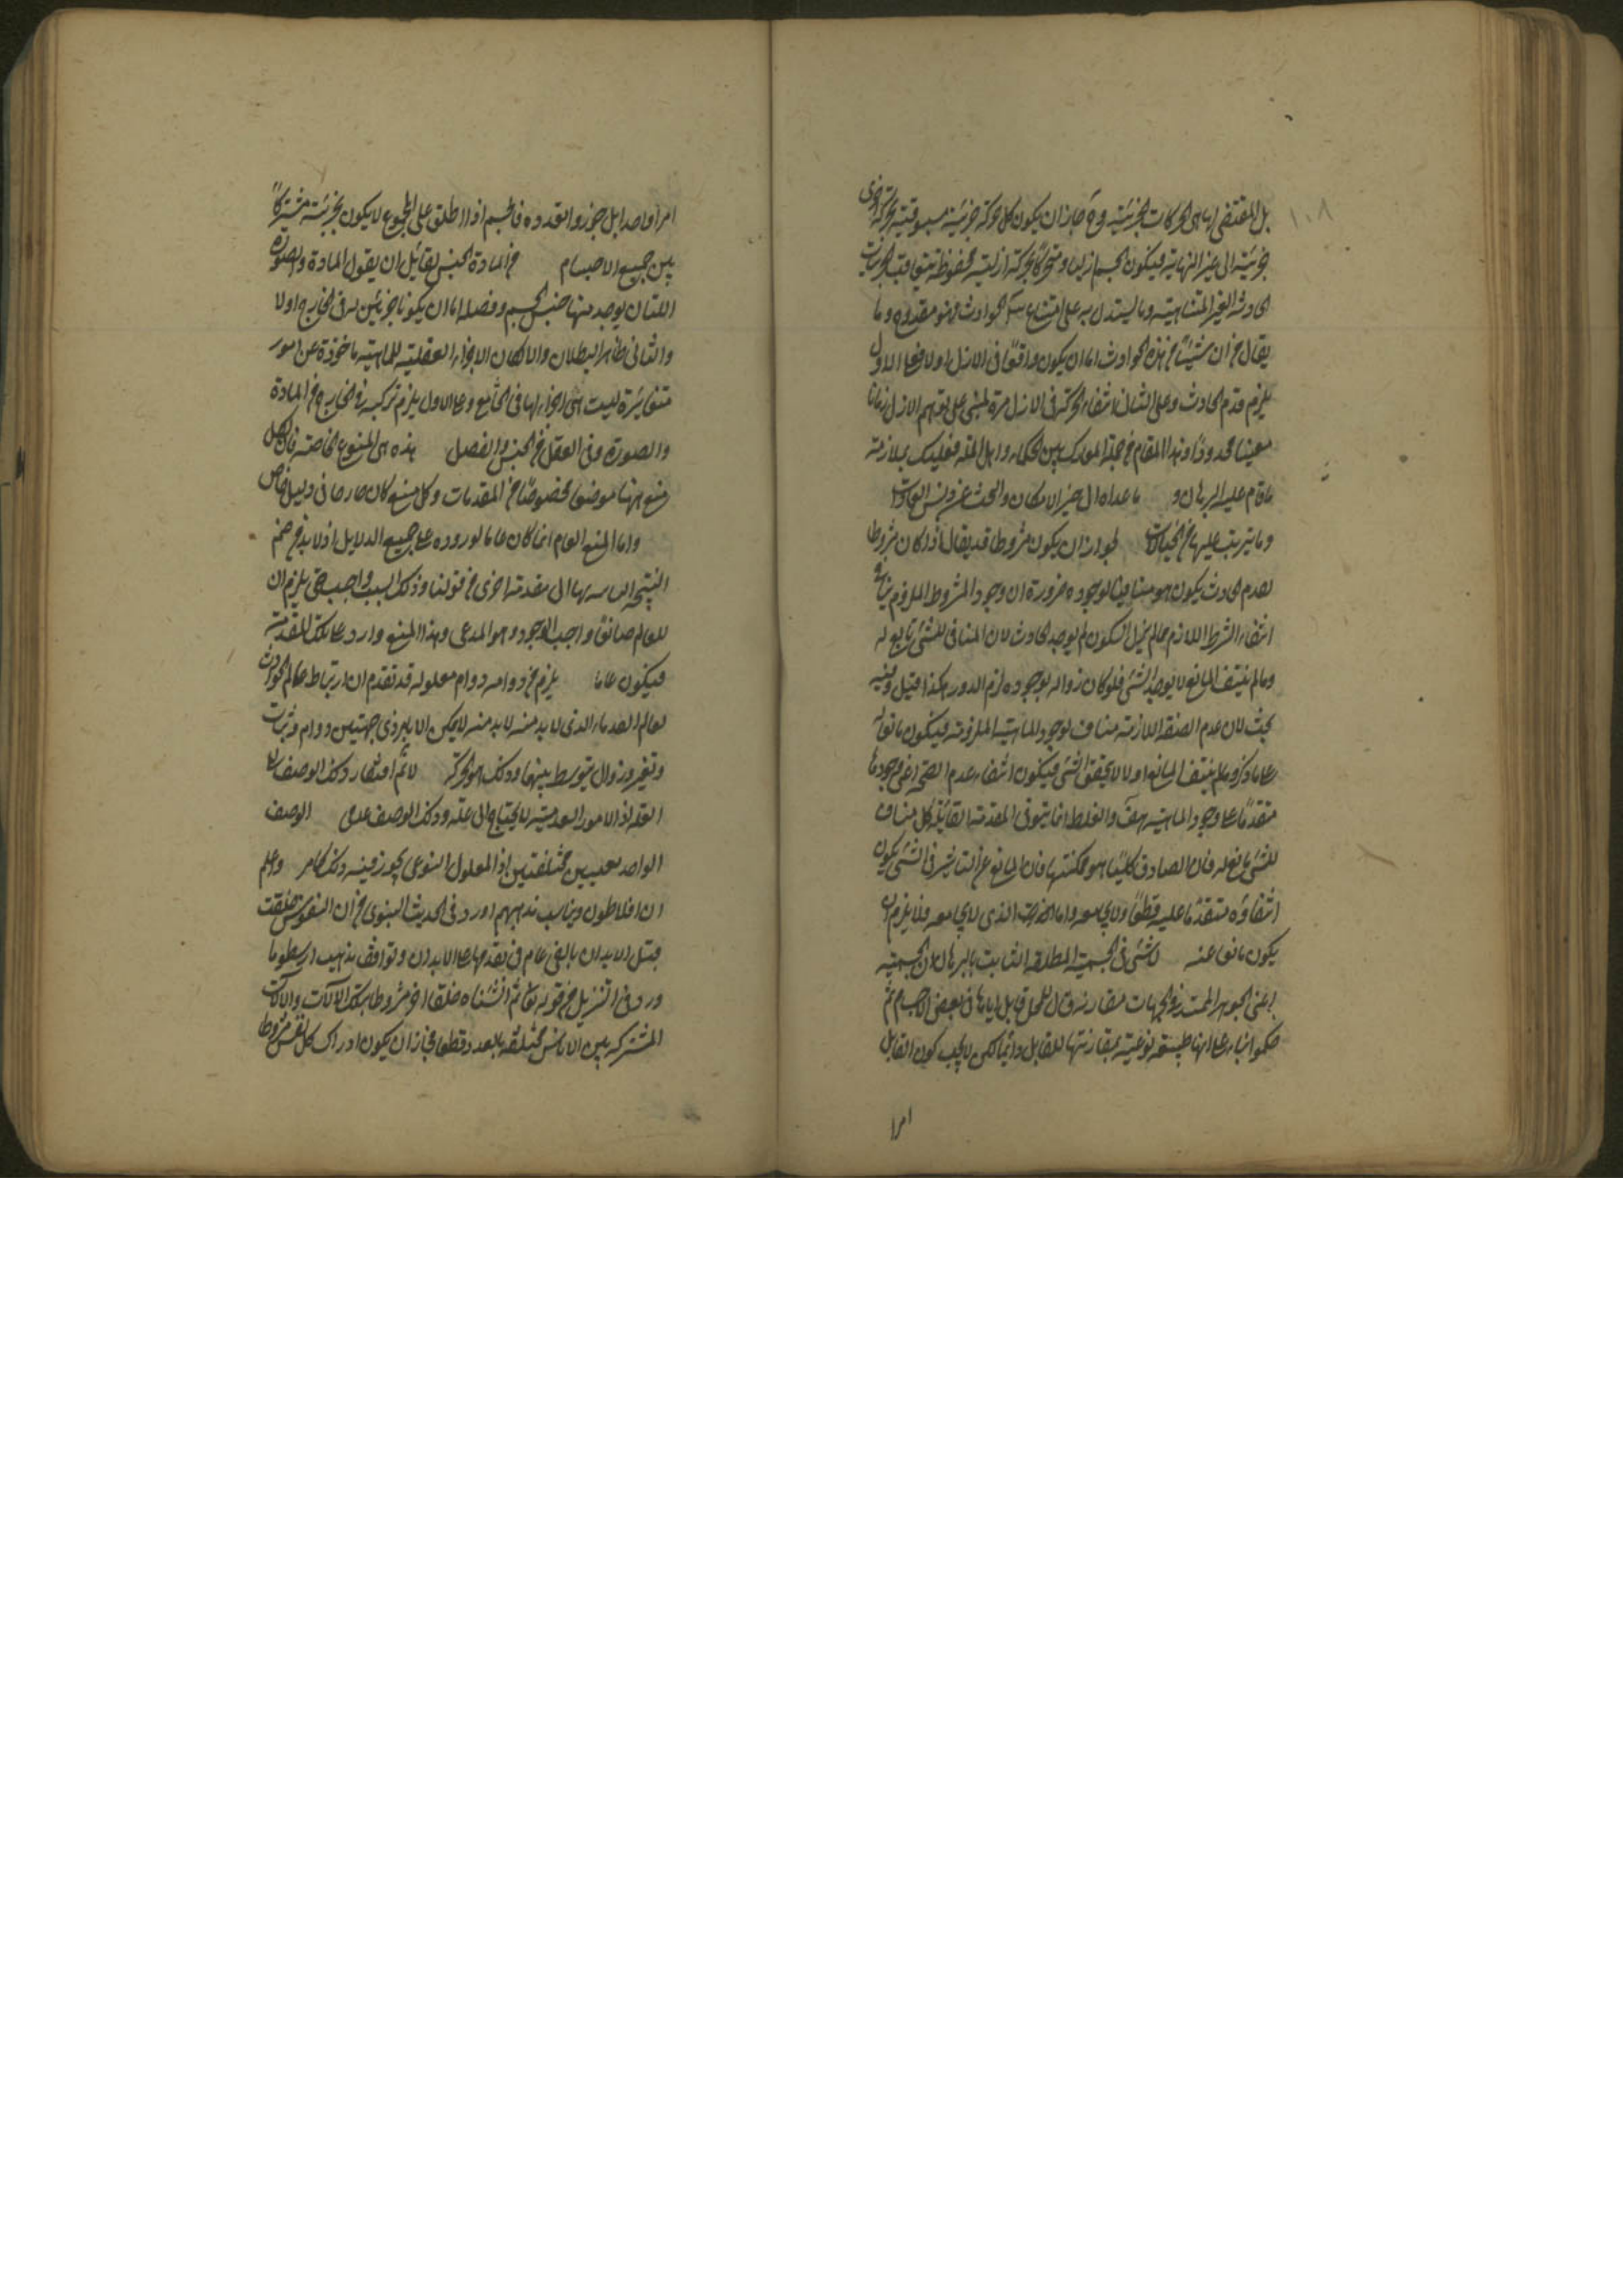 ١٠٨
بل المقتضى اياه هى الحركات الجزئية وح جاز ان يكون كل حركة جزئية مسبوقية بحركة اخرى
جزئية الى غير النهاية فيكون الجسم ازليا ومتحركا بحركة ازلية محفوظة بتعاقب الجزئيات
الحادثة الغير المتناهية وما يستدل به على امتناع الحوادث فهو مقدوح وما
يقال من ان شيئا من هذه الحوادث اما ان يكون واقعا فى الازل اولا فعلى الاول
يلزم قدم الحادث وعلى الثانى انتفاء الحركة فى الازل مرة مبنى على توهم الازل زمانا
معينا محدودا وهذا المقام من جملة المعارك بين الحكماء واهل الملة فعليك بملازمة
ما قام عليه البرهان و ما عداه الى حيز الامكان والبحث عن
وما يترتب عليها من الخيالات لجواز ان يكون مشروطا قد يقال اذا كان مشروطا
لعدم الحادث يكون هو منافيا لوجوده ضرورة ان وجود المشروط الملزوم ينافى
انتفاء الشرط اللازم فما لم يزل السكون لم يوجد الحادث لان المنافى للشئ مانع له
وما لم ينتف المانع لا يوجد الشئ فلو كان زواله بوجوده لزم الدور هكذا قيل وفيه
بحث لان عدم الصفة اللازمة مناف لوجود الماهية الملزومة فيكون مانعا
على ما ذكر وما لم ينتف المانع اولا لا يتحقق الشئ فيكون انتفاء عدم الصفة اعنى وجودها
متقدما على وجود الماهية هف والغلط انما يتوفى المقدمة القائلة كل مناف
للشئ مانع له فان الصادق كليا هو عكسها فان المانع عن التاثير فى الشئ يكون
انتفاؤه متقدما عليه قطعا ولا يجامعه واما الذى لا يجامعه فلا يلزم ان
يكون مانعا عنه لا شئ فى الجسمية المطلقة الثابت بالبرهان ان الجسمية
اعنى الجوهر الممتد فى الجهات مقارنة لمحل قابل اياها فى بعض الاجسام ثم
حكموا بناء على انها طبيعة نوعية بمقارنتها للقابل دائما لكن لا يجب كون القابل
امرا
امرا واحدا بل جوزوا تعدده فالجسم اذا اطلق على المجموع لا يكون بجزئية مشتركا
بين جميع الاجسام من المادة الجنس لقائل ان يقول المادة والصورة
اللتان يوجد منها جنس الجسم وفصله اما ان يكونا جزئين له فى الخارج اولا
والثانى ظاهر البطلان والا لكان الاجزاء العقلية للماهية ماخوذة عن امور
متغايرة ليست هى اجزاء لها فى الخارج وعلى الاول يلزم تركبه فى الخارج من المادة
والصورة وفى العقل من الجنس والفصل هذه هى المنوع الخاصة فان لكل
منع منها موضعا مخصوصا من المقدمات وكل منع كان خاصا فى دليل خاص
واما المنع العام انما كان عاما لوروده على جميع الدلايل اذ لا بد من ضم
النتيجة الى مقدمة اخرى من قولنا وذلك السبب واجب حتى يلزم ان
للعالم صانعا واجب الوجود وهو المدعى وهذا المنع وارد على تلك المقدمة
فيكون عاما يلزم من دوامه دوام معلوله قد تقدم ان ارتباط عالم الحوادث
لعالم القدماء الذى لا بد منه لا يمكن الا بامر ذى جهتين دوام وثبات
وتغير وزوال يتوسط بينهما وذلك هو الحركة لا نم افتقار ذلك الوصف الى
العلة اذ الامور العدمية لا يحتاج الى علة وذلك الوصف عدمى الوصف
الواحد بعلتين مختلفتين اذ المعلول النوعى يجوز فيه ذلك كما مر واعلم
ان افلاطون ويناسب مذهبهم ما ورد فى الحديث النبوى من ان النفوس خلقت
قبل الابدان بالفى عام فى تقدمها على الابدان وتوافق مذهب ارسطو ما
ورد فى التنزيل من قوله تعالى ثم انشأناه خلقا اخر مشروطا بتلك الآلات والآلات
المشتركة بين الاناس مختلفة بالعدد قطعا فجاز ان يكون ادراك كل نفس مشروطا